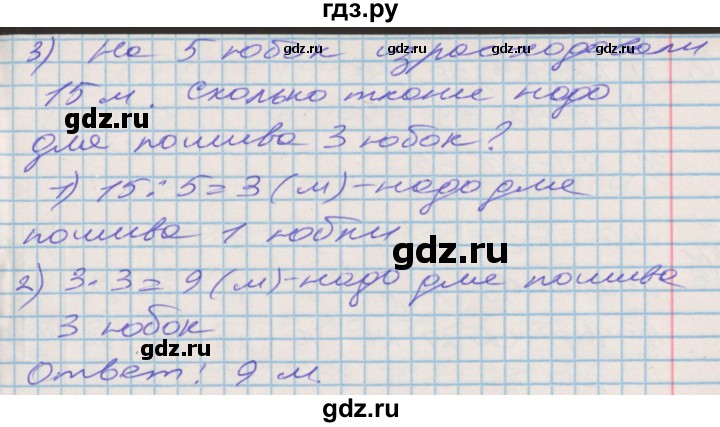 гдз.ру
3) На 5 юбок израсходовали
15 м. Сколько ткани надо
для пошива 3 юбок?
1) 15 : 5 = 3 (м) - надо для
пошива 1 юбки
2) 3 · 3 = 9 (м) - надо для пошива
3 юбок
Ответ: 9 м.
gdz.ru
gdz.ru
gdz.ru
gdz.ru
gdz.ru
gdz.ru
gdz.ru
gdz.ru
gdz.ru
gdz.ru
gdz.ru
gdz.ru